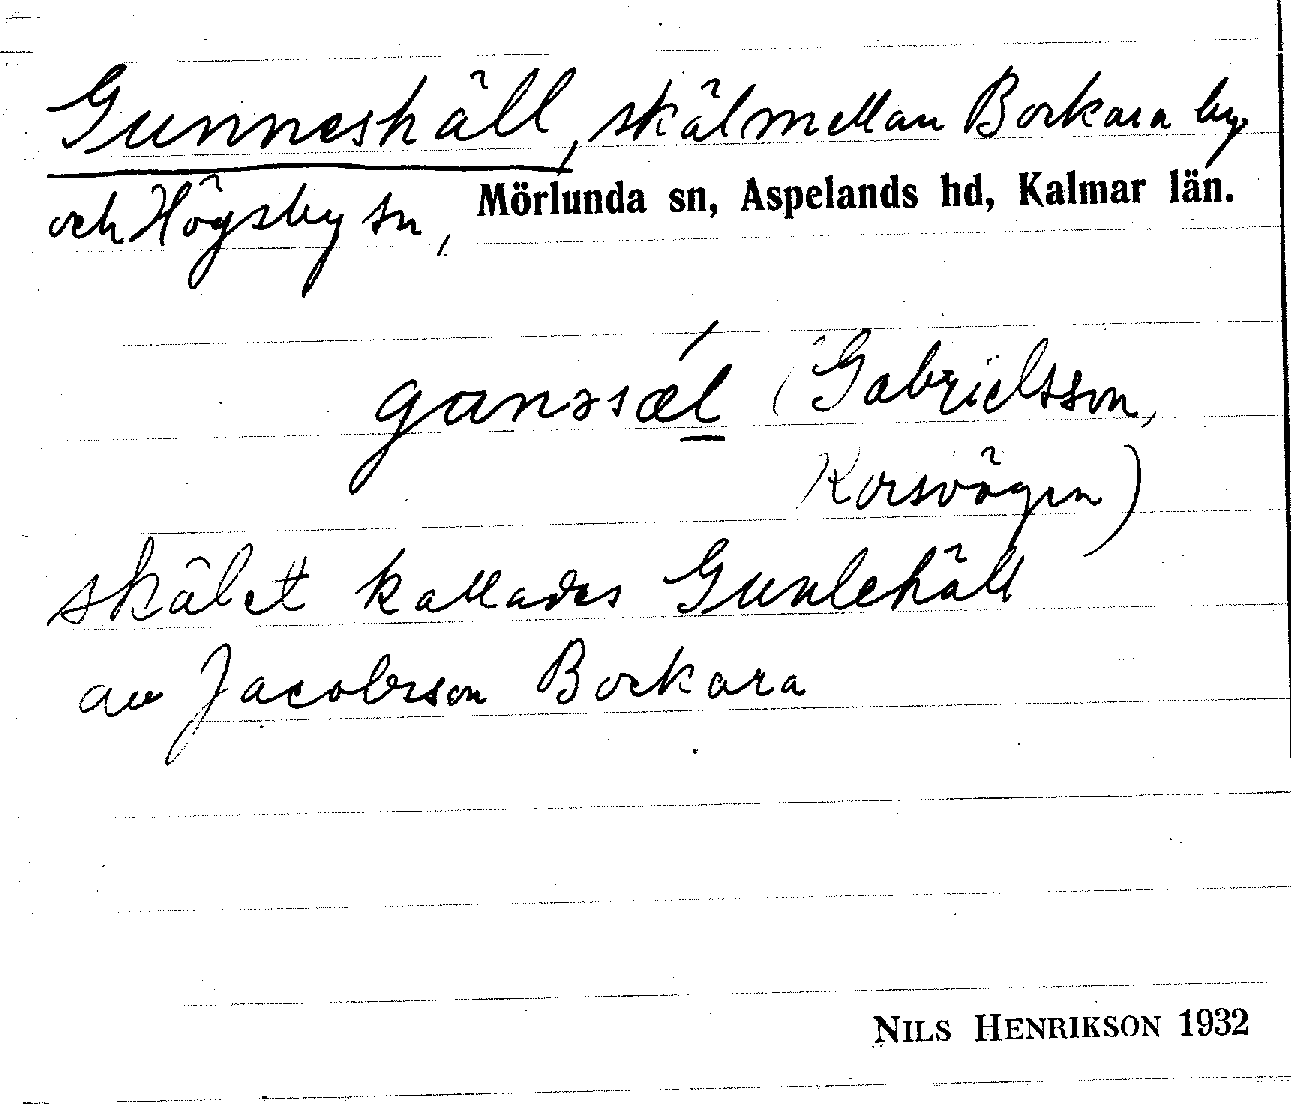 Gunneshäll, skäl mellan Bockara by
och Högsby sn, Mörlunda sn, Aspelands hd, Kalmar län.
gɑnəsǽl (Gabrielsson,
Korsvägen)
skälet kallades Gunlehäll
av Jacobsson Bockara
NILS HENRIKSON 1932